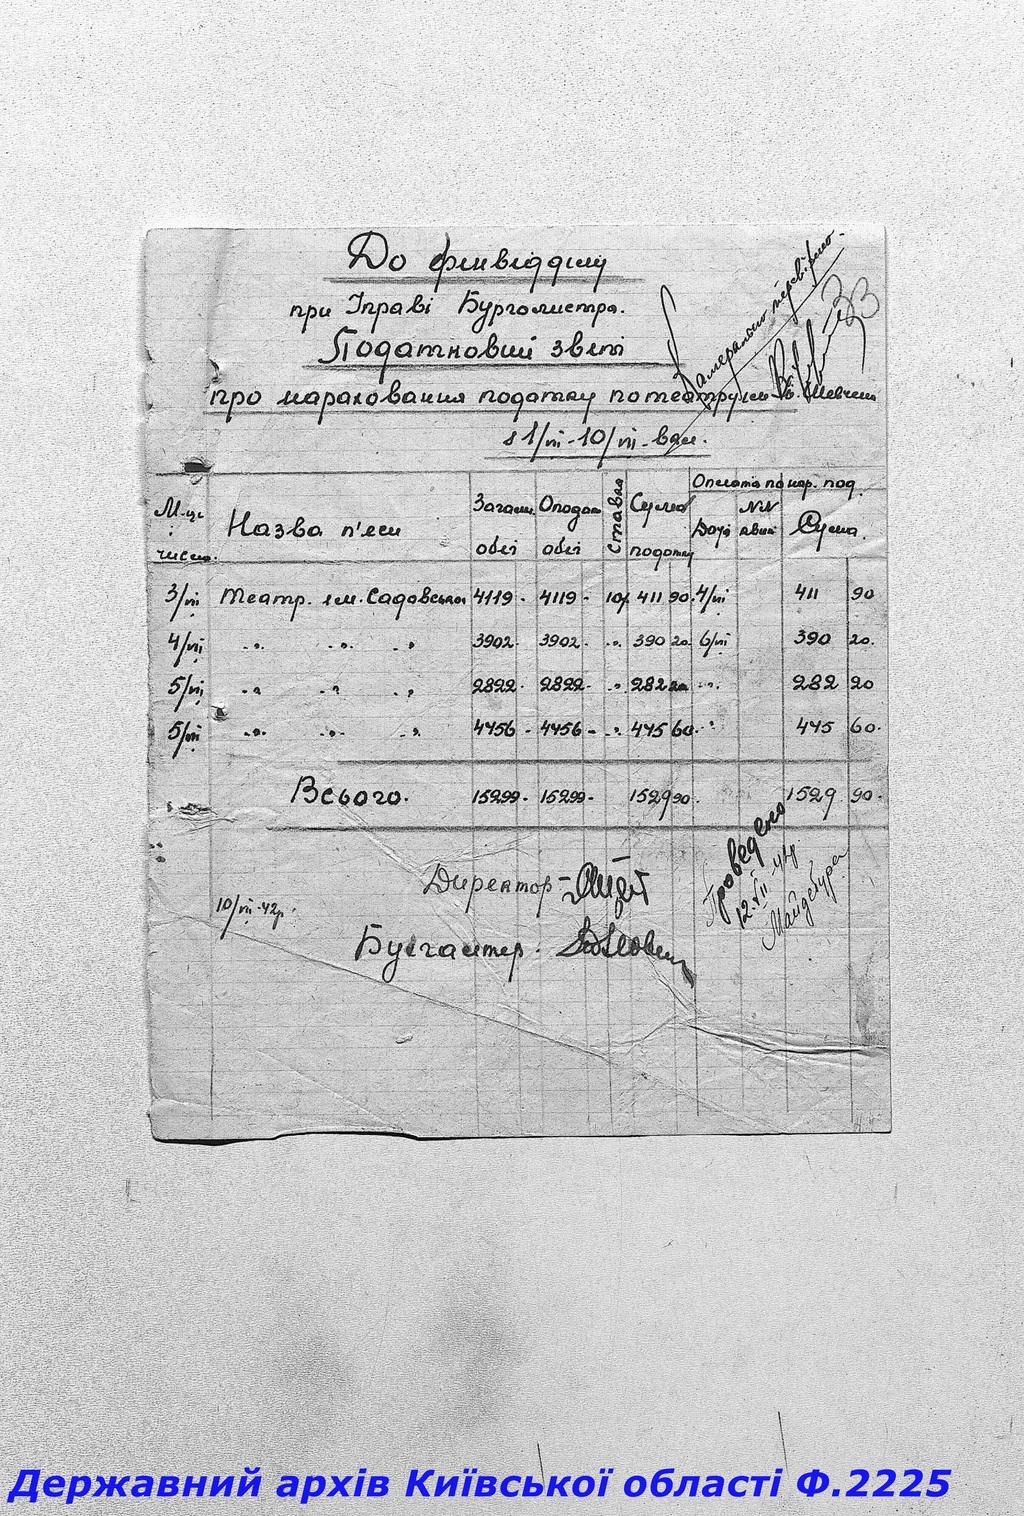 До фінвідділу
при Управі Бургомистра.
Податковий звіт
про нараховання податку по театру ім.
з 1/VII - 10/VII - вкл.
Камерально перевірено.
33
М-ць число. Назва п'єси Загальн. обіг Оподат обіг Ставка Сума податку Оплата по нар. под.
Дата №№ квит Сума.
3/VII Театр. ім. Садовського 4119 - 4119 - 10% 411 90. 4/VII 411 90
4/VII -"- -"- -"- 3902 - 3902 - -"- 390 20 6/VII 390 20.
5/VII -"- -"- -"- 2822 - 2822 - -"- 282 20 -"- 282 20
5/VII -"- -"- -"- 4456 - 4456 - -"- 445 60. -"- 445 60.
Всього. 15299 - 15299 - 1529 90. 1529 90.
Директор -
10/VII-42р.
Бухгалтер.
Проведено
12.VII.42р.
Державний архів Київської області Ф.2225